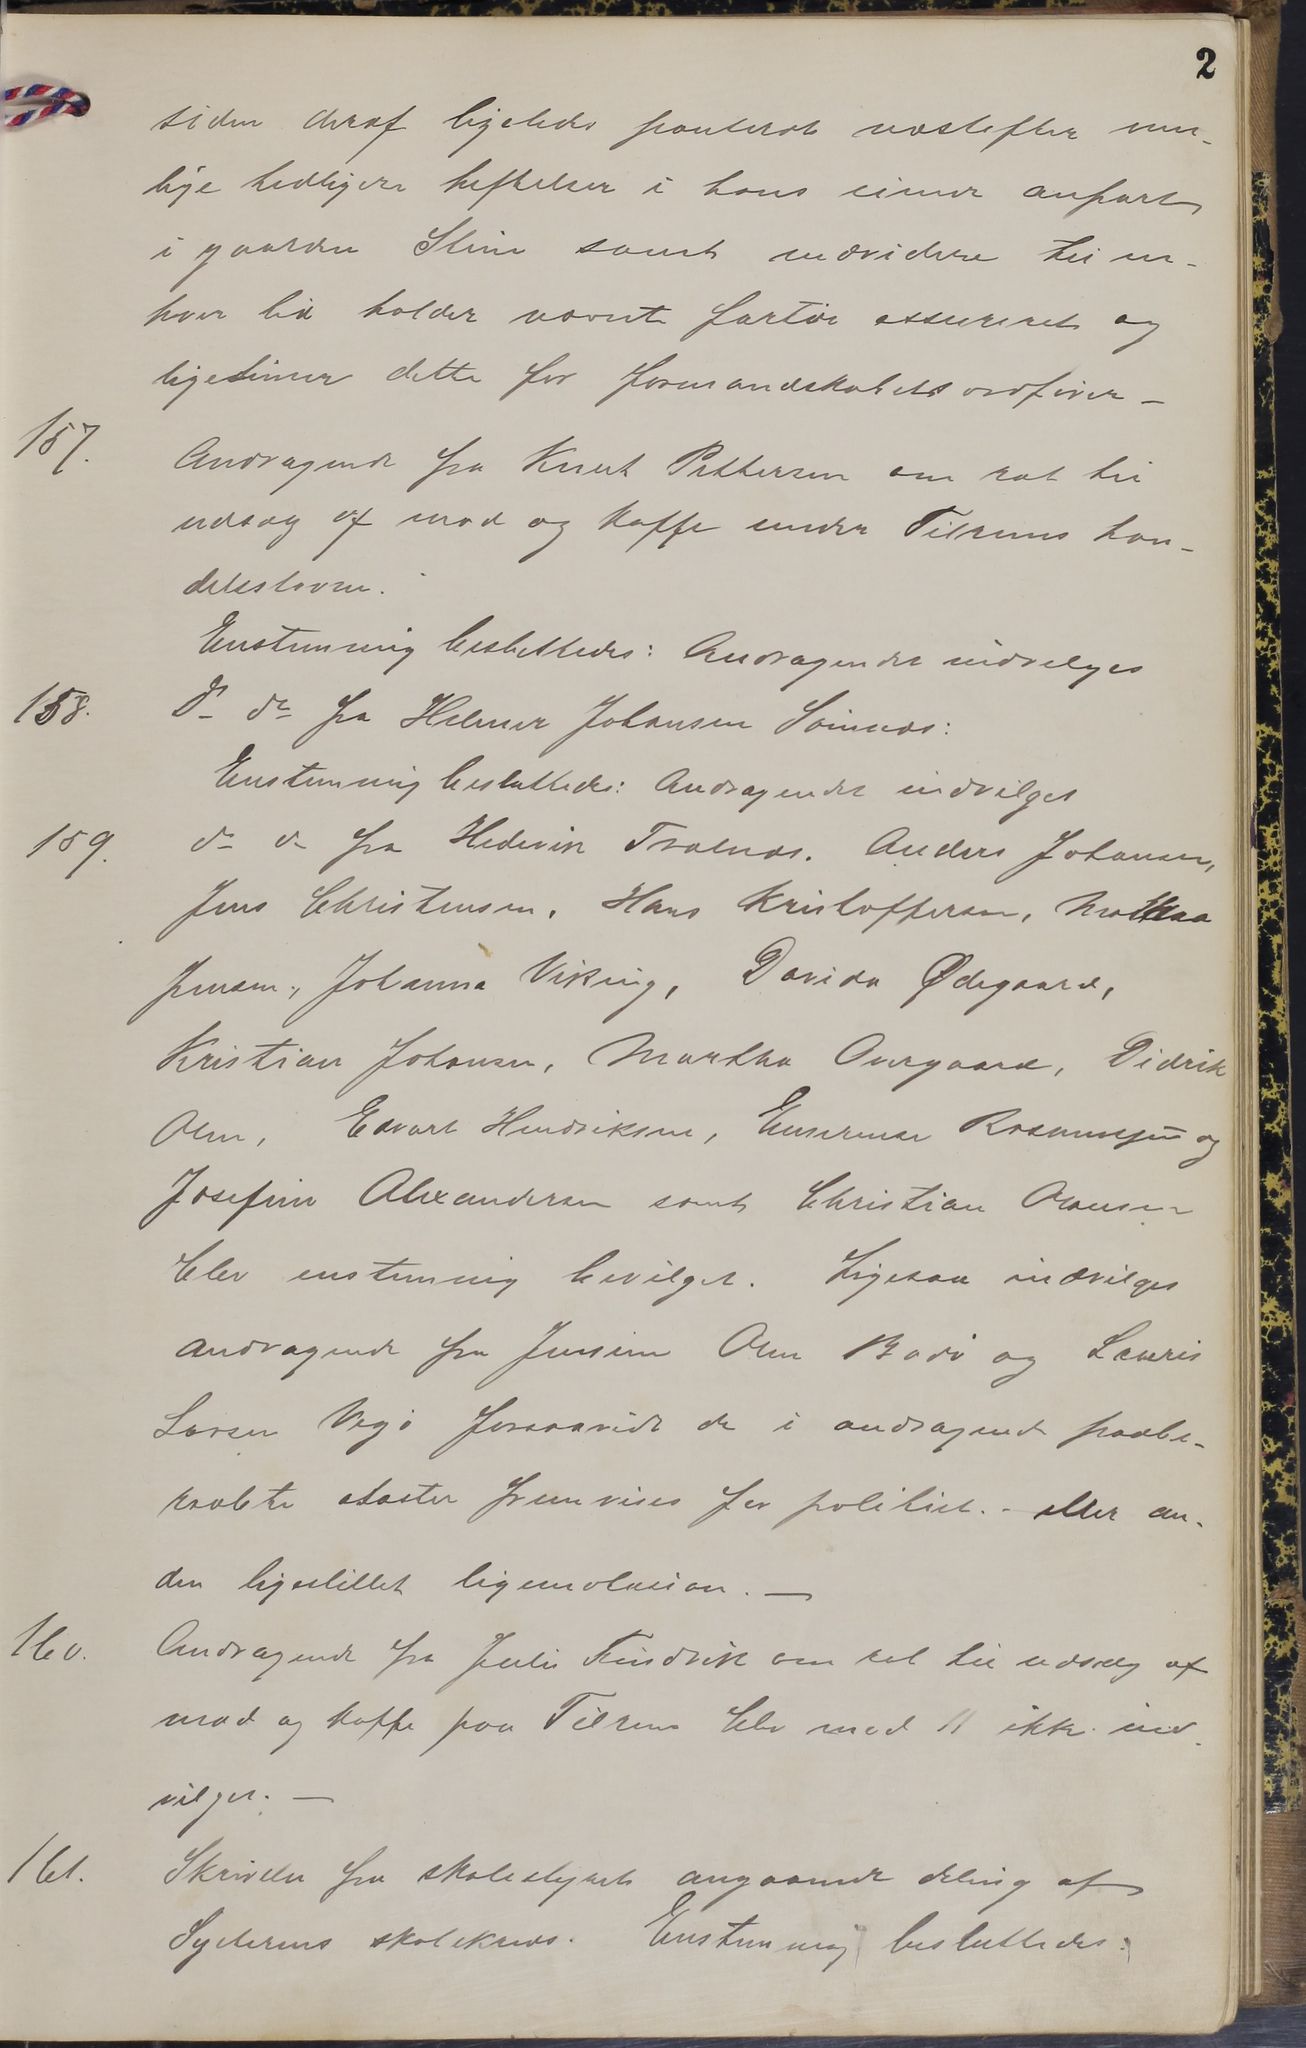 2
siden deraf ligeledes panteret næstefter mu-
lige tidligere heftelser i hans eiende anpart
i gaarden Stene samt endvidere til en-
hver tid holder nævnte fartøi assureret og
legitimerer dette for formandskabets ordfører —
157. Andragende fra Knut Pettersen om ret til
udsalg af mad og kaffe under Tilrems han-
delsstevne.
Enstemmig besluttedes: Andragendet indvilges
158. do do fra Helmer Johansen Sömnes:
Enstemmig besluttedes: Andragendet indvilges
159. do do fra Hedevik Trælnes. Anders Johansen,
Jens Christensen, Hans Kristoffersen,
Jensen, Johanna Viking, Davida Ødegaard,
Kristian Johansen, Martha Overgaard, Didrik
Olsen, Edvart Hendriksen, Rasmussen og
Josefine Alexandersen samt Christian Olausen
blev enstemmig bevilget. Ligesaa indvilges
andragende fra Jensine Olsen Bodö og Lauris
Larsen Vegö forsaavidt de i andragendet paabe-
raabte attester fremvises for politiet. — eller an-
den ligestillet legitimation. —
160. Andragende fra Julie Tindvik om ret til udsalg af
mad og kaffe paa Tilrem blev med 11 ikke ind-
vilget. —
161. Skrivelse fra skolestyret angaaende deling af
skolekreds. Enstemmig besluttedes: